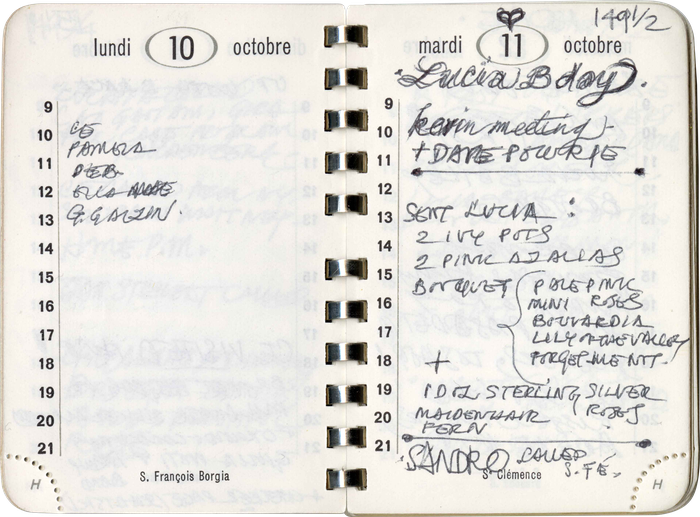 lundi 10 octobre
9
10
11
12
13
14
15
16
17
18
19
20
21
CE
PAMELA
DEB.
ELLA
G. GALZIN.
S. François Borgia
H
149 1/2
mardi 11 octobre
Lucia B day.
9
10
11
12
13
14
15
16
17
18
19
20
21
kevin meeting.
+ DAVE POWRIE
SENT LUCIA :
2 IVY POTS
2 PINK AZALLAS
BOUQUET PALE PINK
MINI ROSES
BOUVARDIA
LILY OF THE VALLEY
FORGETMENT.
+
1 DOZ STERLING SILVER
ROSES
MAIDENHAIR
FERN
SANDRO CALLED
S. FE.
S. Clémence
H